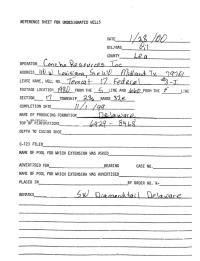 REFERENCE SHEET FOR UNDESIGNATED WELLS
DATE 1/28/00
OIL/GAS Oil
COUNTY Lea
OPERATOR Concho Resources Inc
ADDRESS 110 W Louisiana, Ste 410 Midland Tx 79701
LEASE NAME, WELL NO. Tomcat 17 Federal #3-J
FOOTAGE LOCATION, 1980 FROM THE S LINE AND 1660 FROM THE E LINE
SECTION 17 TOWNSHIP 23s RANGE 32e
COMPLETION DATE 11/1/99
NAME OF PRODUCING FORMATION Delaware
TOP OF PERFORATIONS 6929 - 8468
DEPTH TO CASING SHOE
C-123 FILED
NAME OF POOL FOR WHICH EXTENSION WAS ASKED
ADVERTISED FOR HEARING CASE NO.
NAME OF POOL FOR WHICH EXTENSION WAS ADVERTISED
PLACED IN BY ORDER NO. R-
REMARKS SW Diamondtail Delaware